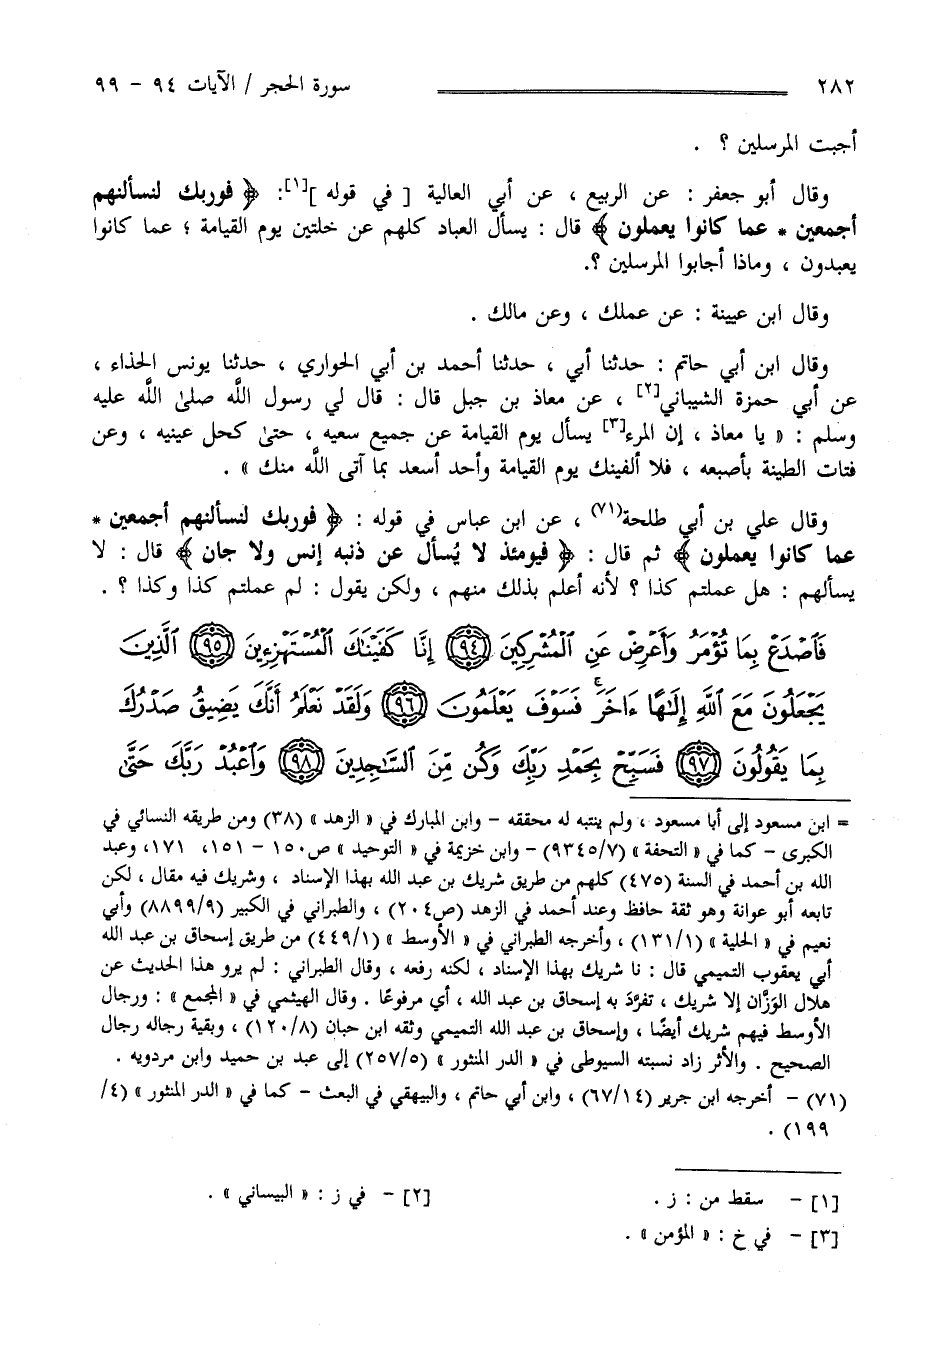 ٢٨٢ سورة الحجر / الآيات ٩٤ - ٩٩
أجبت المرسلين ؟ .
وقال أبو جعفر : عن الربيع ، عن أبي العالية [ في قوله ][١]: ﴿ فوربك لنسألنهم
أجمعين * عما كانوا يعملون ﴾ قال : يسأل العباد كلهم عن خلتين يوم القيامة ؛ عما كانوا
يعبدون ، وماذا أجابوا المرسلين ؟.
وقال ابن عيينة : عن عملك ، وعن مالك .
وقال ابن أبي حاتم : حدثنا أبي ، حدثنا أحمد بن أبي الحواري ، حدثنا يونس الحذاء ،
عن أبي حمزة الشيباني[٢] ، عن معاذ بن جبل قال : قال لي رسول اللَّه صلى اللَّه عليه
وسلم : « يا معاذ ، إن المرء[٣] يسأل يوم القيامة عن جميع سعيه ، حتى كحل عينيه ، وعن
فتات الطينة بأصبعه ، فلا ألفينك يوم القيامة وأحد أسعد بما آتى اللَّه منك » .
وقال علي بن أبي طلحة(٧١) ، عن ابن عباس في قوله : ﴿ فوربك لنسألنهم أجمعين *
عما كانوا يعملون ﴾ ثم قال : ﴿ فيومئذ لا يُسأل عن ذنبه إنس ولا جان ﴾ قال : لا
يسألهم : هل عملتم كذا ؟ لأنه أعلم بذلك منهم ، ولكن يقول : لم عملتم كذا وكذا ؟ .
فَٱصْدَعْ بِمَا تُؤْمَرُ وَأَعْرِضْ عَنِ ٱلْمُشْرِكِينَ ٩٤ إِنَّا كَفَيْنَاكَ ٱلْمُسْتَهْزِءِينَ ٩٥ ٱلَّذِينَ
يَجْعَلُونَ مَعَ ٱللَّهِ إِلَـٰهًا ءَاخَرَ ۚ فَسَوْفَ يَعْلَمُونَ ٩٦ وَلَقَدْ نَعْلَمُ أَنَّكَ يَضِيقُ صَدْرُكَ
بِمَا يَقُولُونَ ٩٧ فَسَبِّحْ بِحَمْدِ رَبِّكَ وَكُن مِّنَ ٱلسَّـٰجِدِينَ ٩٨ وَٱعْبُدْ رَبَّكَ حَتَّىٰ
= ابن مسعود إلى أبا مسعود ، ولم ينتبه له محققه - وابن المبارك في « الزهد » (٣٨) ومن طريقه النسائي في
الكبرى - كما في « التحفة » (٩٣٤٥/٧) - وابن خزيمة في « التوحيد » ص١٥٠ - ١٥١، ١٧١، وعبد
الله بن أحمد في السنة (٤٧٥) كلهم من طريق شريك بن عبد الله بهذا الإسناد ، وشريك فيه مقال ، لكن
تابعه أبو عوانة وهو ثقة حافظ وعند أحمد في الزهد (ص٢٠٤) ، والطبراني في الكبير (٨٨٩٩/٩) وأبي
نعيم في « الحلية » (١٣١/١) ، وأخرجه الطبراني في « الأوسط » (٤٤٩/١) من طريق إسحاق بن عبد الله
أبي يعقوب التميمي قال : نا شريك بهذا الإسناد ، لكنه رفعه ، وقال الطبراني : لم يرو هذا الحديث عن
هلال الوَزَّان إلا شريك ، تفرَّدَ به إسحاق بن عبد الله ، أي مرفوعًا . وقال الهيثمي في « المجمع » : ورجال
الأوسط فيهم شريك أيضًا ، وإسحاق بن عبد الله التميمي وثقه ابن حبان (١٢٠/٨) ، وبقية رجاله رجال
الصحيح . والأثر زاد نسبته السيوطي في « الدر المنثور » (٢٥٧/٥) إلى عبد بن حميد وابن مردويه .
(٧١) - أخرجه ابن جرير (٦٧/١٤) ، وابن أبي حاتم ، والبيهقي في البعث - كما في « الدر المنثور » (٤/
١٩٩) .
[١] - سقط من : ز . [٢] - في ز : « البيساني » .
[٣] - في خ : « المؤمن » .